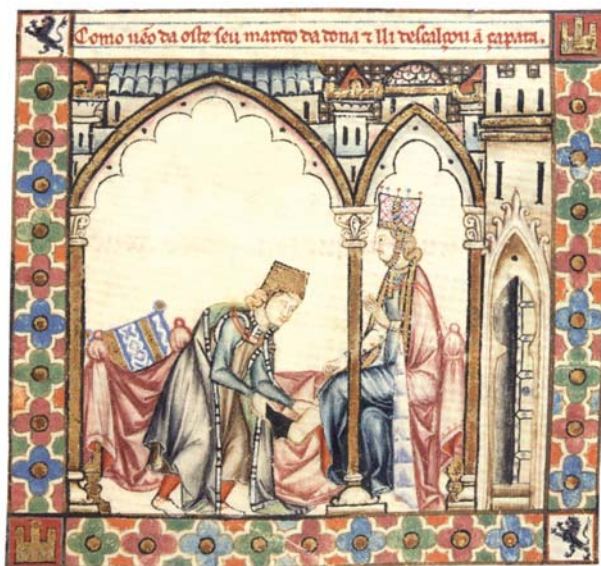 Como uẽo da oste seu marido da dona ⁊ lli descalçou ã çapata.